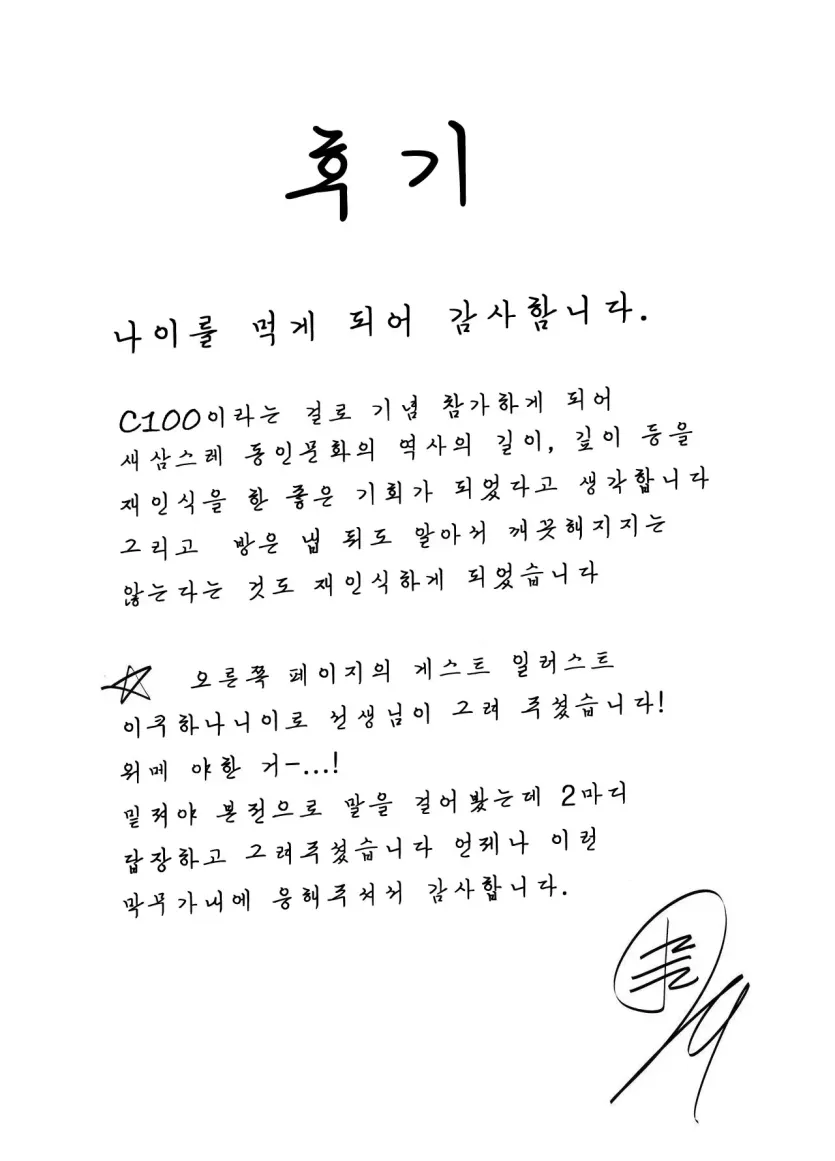 후기
나이를 먹게 되어 감사합니다.
C100이라는 걸로 기념 참가하게 되어
새삼스레 동인문화의 역사의 길이, 깊이 등을
재인식을 한 좋은 기회가 되었다고 생각합니다
그리고 방은 냅 둬도 알아서 깨끗해지지는
않는다는 것도 재인식하게 되었습니다
오른쪽 페이지의 게스트 일러스트
이쿠하나니이로 선생님이 그려 주셨습니다!
위메 야한 거-...!
밑져야 본전으로 말을 걸어봤는데 2마디
답장하고 그려주셨습니다 언제나 이런
막무가내에 응해주셔서 감사합니다.